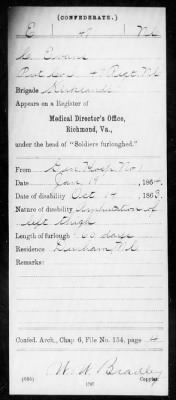 (CONFEDERATE.)
E 47 N C
C. Evans
Pvt Co. E 47 Regt. N C
Brigade Kirkland's
Appears on a Register of
Medical Director's Office,
Richmond, Va.,
under the head of "Soldiers furloughed."
From Gen Hosp No 1
Date Jan 19, 1864.
Date of disability Oct 14, 1863.
Nature of disability Amputation of
left thigh
Length of furlough 60 days
Residence Durham N C
Remarks:
Confed. Arch., Chap. 6, File No. 154, page 4
W. A. Bradley
(635) Copyist.